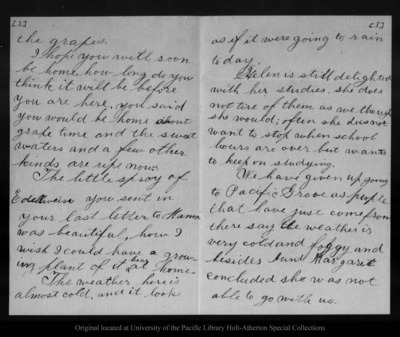 [2]
the grapes.
I hope you will soon
be home, how long do you
think it will be before
you are here, you said
you would be home about
grape time and the sweet
waters and a few other
kinds are ripe now.
The little spray of
Edelweiss you sent in
your last letter to Mama
was beautiful, how I
wish I could have a grow-
ing plant of it here at home.
The weather here is
almost cold, and it looks
[3]
as if it were going to rain
today.
Helen is still delighted
with her studies. she does
not tire of them as we thought
she would; often she does not
want to stop when school
hours are over but wants
to keep on studying.
We have given up going
to Pacific Grove as people
that have just come from
there say the weather is
very cold and foggy and
besides Aunt Margaret
concluded she was not
able to go with us.
Original located at University of the Pacific Library Holt-Atherton Special Collections